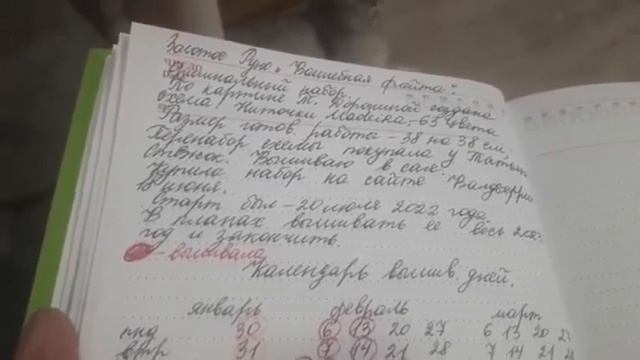 Золотое Руно „Волшебная флейта".
Оригинальный набор.
По картине М. Порошиной создана
схема. Ниточки Madeira - 63 цвета
Размер готов. работа - 38 на 38 см.
Перенабор схемы покупала у Татьян
Стежок. Вышиваю в сале.
Купила набор на сайте Валдберри
18 июня.
Старт был - 20 июля 2022 года.
В планах вышивать её весь 202
год и закончить.
- вышивала
Календарь вышив. дней.
январь февраль март
пнд 30 6 13 20 27 6 13 20 2
втр 31 7 14 21 28 7 14 21